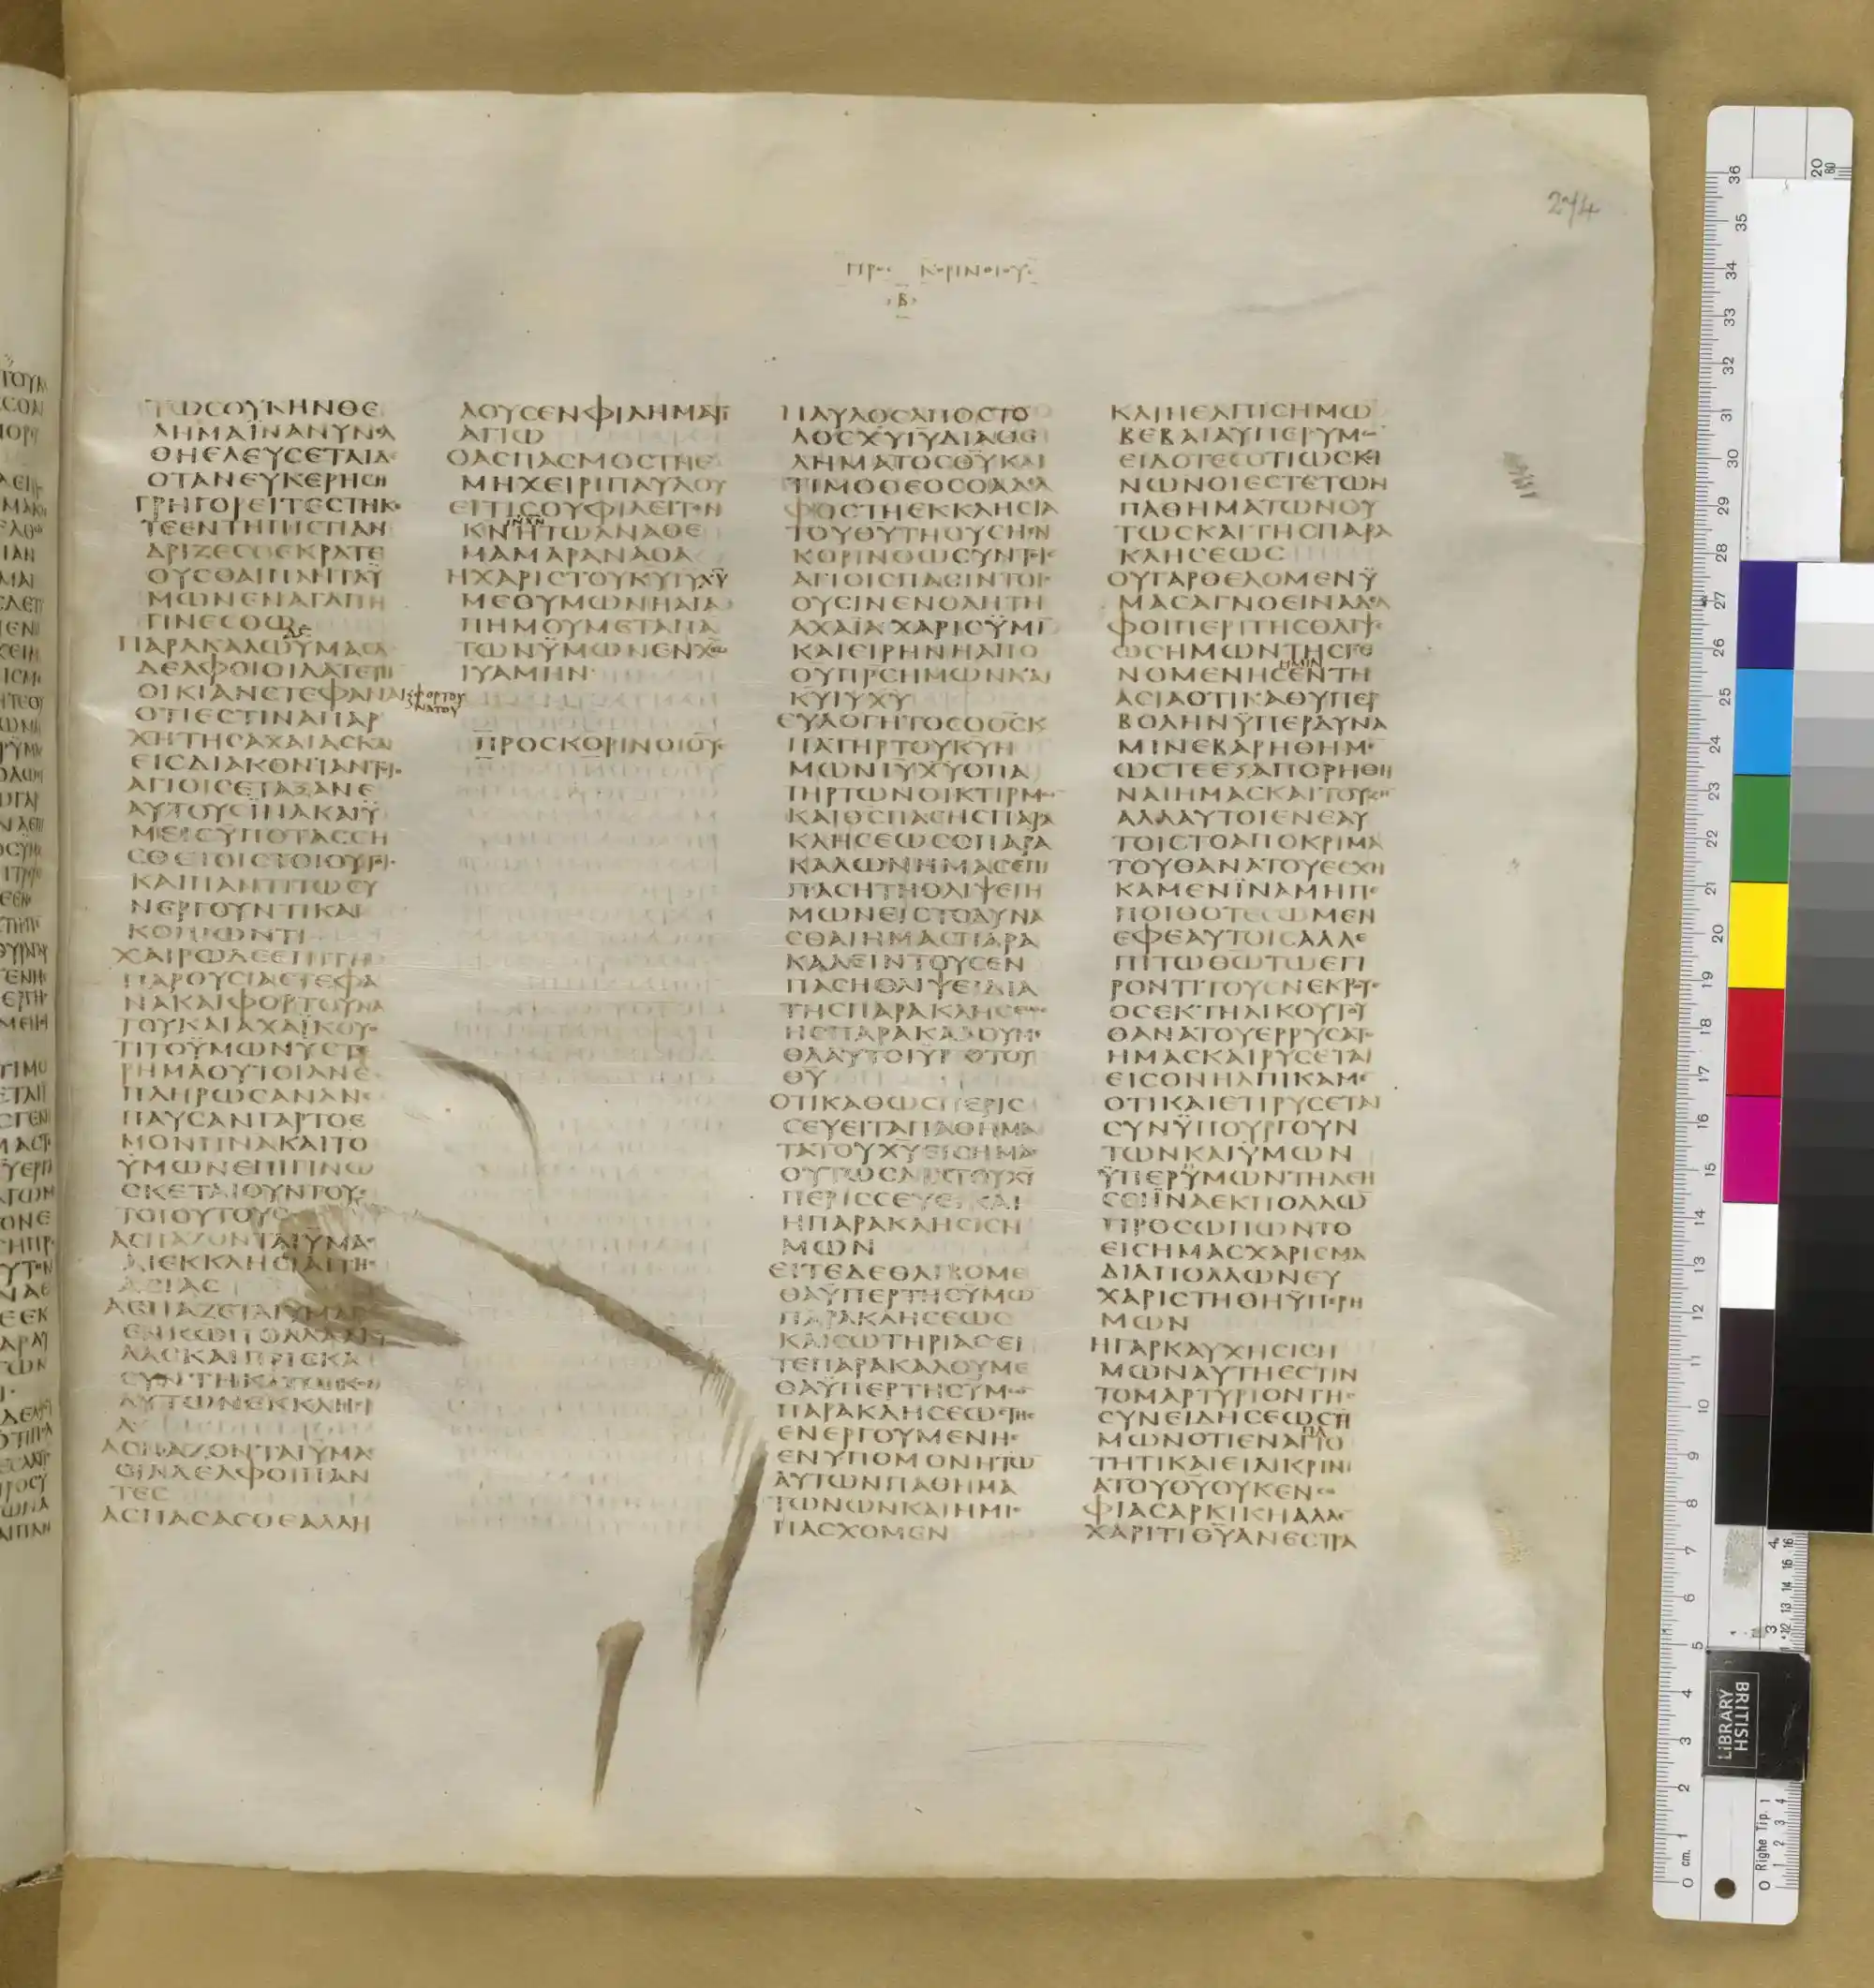 274
ΠΡΟϹ ΚΟΡΙΝΘΙΟΥϹ
Β
ΤΩϹΟΥΚΗΝΘΕ
ΛΗΜΑΪΝΑΝΥΝΕΛ
ΘΗΕΛΕΥϹΕΤΑΙΔΕ
ΟΤΑΝΕΥΚΕΡΗϹΗ
ΓΡΗΓΟΡΕΙΤΕϹΤΗΚΕ
ΤΕΕΝΤΗΠΙϹΤΙΑΝ
ΔΡΙΖΕϹΘΕΚΡΑΤΕ
ΟΥϹΘΑΙΠΑΝΤΑΫ
ΜΩΝΕΝΑΓΑΠΗ
ΓΙΝΕϹΘΩ
ΔΕ
ΠΑΡΑΚΑΛΩΫΜΑϹΑ
ΔΕΛΦΟΙΟΙΔΑΤΕΤΗ
ΟΙΚΙΑΝϹΤΕΦΑΝΑ
ΚΑΙΦΟΡΤΟΥ
ΝΑΤΟΥ
ΟΤΙΕϹΤΙΝΑΠΑΡ
ΧΗΤΗϹΑΧΑΙΑϹΚΑΙ
ΕΙϹΔΙΑΚΟΝΙΑΝΤΟΙϹ
ΑΓΙΟΙϹΕΤΑΞΑΝΕ
ΑΥΤΟΥϹΪΝΑΚΑΙΫ
ΜΕΙϹΫΠΟΤΑϹϹΗ
ϹΘΕΤΟΙϹΤΟΙΟΥΤΟΙϹ
ΚΑΙΠΑΝΤΙΤΩϹΥ
ΝΕΡΓΟΥΝΤΙΚΑΙ
ΚΟΠΙΩΝΤΙ
ΧΑΙΡΩΔΕΕΠΙΤΗ
ΠΑΡΟΥϹΙΑϹΤΕΦΑ
ΝΑΚΑΙΦΟΡΤΟΥΝΑ
ΤΟΥΚΑΙΑΧΑΪΚΟΥΟ
ΤΙΤΟΫΜΩΝΥϹΤΕ
ΡΗΜΑΟΥΤΟΙΑΝΕ
ΠΛΗΡΩϹΑΝΑΝΕ
ΠΑΥϹΑΝΓΑΡΤΟΕ
ΜΟΝΠΝΑΚΑΙΤΟ
ΫΜΩΝΕΠΙΓΙΝΩ
ϹΚΕΤΑΙΟΥΝΤΟΥϹ
ΤΟΙΟΥΤΟΥϹ
ΑϹΠΑΖΟΝΤΑΙΫΜΑϹ
ΑΙΕΚΚΛΗϹΙΑΙΤΗϹ
ΑϹΙΑϹ
ΑϹΠΑΖΕΤΑΙΫΜΑϹ
ΕΝΚΩΠΟΛΛΑΑΚΥ
ΛΑϹΚΑΙΠΡΙϹΚΑ
ϹΥΝΤΗΚΑΤΟΙΚΟΝ
ΑΥΤΩΝΕΚΚΛΗϹΙ
Α
ΑϹΠΑΖΟΝΤΑΙΫΜΑϹ
ΟΙΑΔΕΛΦΟΙΠΑΝ
ΤΕϹ
ΑϹΠΑϹΑϹΘΕΑΛΛΗ
ΛΟΥϹΕΝΦΙΛΗΜΑΤΙ
ΑΓΙΩ
ΟΑϹΠΑϹΜΟϹΤΗΕ
ΜΗΧΕΙΡΙΠΑΥΛΟΥ
ΕΙΤΙϹΟΥΦΙΛΕΙΤΟΝ
ΙΝΧΝ
ΚΝΗΤΩΑΝΑΘΕ
ΜΑΜΑΡΑΝΑΘΑ
ΗΧΑΡΙϹΤΟΥΚΥΙΥΧΥ
ΜΕΘΥΜΩΝΗΑΓΑ
ΠΗΜΟΥΜΕΤΑΠΑ
ΤΩΝΫΜΩΝΕΝΧΩ
ΙΥΑΜΗΝ
ΠΡΟϹΚΟΡΙΝΘΙΟΥϹ
ΠΑΥΛΟϹΑΠΟϹΤΟ
ΛΟϹΧΥΙΥΔΙΑΘΕ
ΛΗΜΑΤΟϹΘΥΚΑΙ
ΤΙΜΟΘΕΟϹΟΑΔΕΛ
ΦΟϹΤΗΕΚΚΛΗϹΙΑ
ΤΟΥΘΥΤΗΟΥϹΗΕΝ
ΚΟΡΙΝΘΩϹΥΝΤΟΙϹ
ΑΓΙΟΙϹΠΑϹΙΝΤΟΙϹ
ΟΥϹΙΝΕΝΟΛΗΤΗ
ΑΧΑΪΑΧΑΡΙϹΫΜΙ
ΚΑΙΕΙΡΗΝΗΑΠΟ
ΘΥΠΡϹΗΜΩΝΚΑΙ
ΚΥΙΥΧΥ
ΕΥΛΟΓΗΤΟϹΟΘϹΚ
ΠΑΤΗΡΤΟΥΚΥΗ
ΜΩΝΙΥΧΥΟΠΑ
ΤΗΡΤΩΝΟΙΚΤΙΡΜΩ
ΚΑΙΘϹΠΑϹΗϹΠΑΡΑ
ΚΛΗϹΕΩϹΟΠΑΡΑ
ΚΑΛΩΝΗΜΑϹΕΠΙ
ΠΑϹΗΤΗΘΛΙΨΕΙΗ
ΜΩΝΕΙϹΤΟΔΥΝΑ
ϹΘΑΙΗΜΑϹΠΑΡΑ
ΚΑΛΕΙΝΤΟΥϹΕΝ
ΠΑϹΗΘΛΙΨΕΙΔΙΑ
ΤΗϹΠΑΡΑΚΛΗϹΕΩϹ
ΗϹΠΑΡΑΚΑΛΟΥΜΕ
ΘΑΑΥΤΟΙΥΠΟΤΟΥ
ΘΥ
ΟΤΙΚΑΘΩϹΠΕΡΙϹ
ϹΕΥΕΙΤΑΠΑΘΗΜΑ
ΤΑΤΟΥΧΥΕΙϹΗΜΑϹ
ΟΥΤΩϹΔΙΑΤΟΥΧΥ
ΠΕΡΙϹϹΕΥΕΙΚΑΙ
ΗΠΑΡΑΚΛΗϹΙϹΗ
ΜΩΝ
ΕΙΤΕΔΕΘΛΙΒΟΜΕ
ΘΑΫΠΕΡΤΗϹΥΜΩ
ΠΑΡΑΚΛΗϹΕΩϹ
ΚΑΙϹΩΤΗΡΙΑϹΕΙ
ΤΕΠΑΡΑΚΑΛΟΥΜΕ
ΘΑΫΠΕΡΤΗϹΥΜΩ
ΠΑΡΑΚΛΗϹΕΩϹΤΗϹ
ΕΝΕΡΓΟΥΜΕΝΗϹ
ΕΝΥΠΟΜΟΝΗΤΩ
ΑΥΤΩΝΠΑΘΗΜΑ
ΤΩΝΩΝΚΑΙΗΜΙϹ
ΠΑϹΧΟΜΕΝ
ΚΑΙΗΕΛΠΙϹΗΜΩ
ΒΕΒΑΙΑΥΠΕΡΥΜΩ
ΕΙΔΟΤΕϹΟΤΙΩϹΚΟΙ
ΝΩΝΟΙΕϹΤΕΤΩΝ
ΠΑΘΗΜΑΤΩΝΟΥ
ΤΩϹΚΑΙΤΗϹΠΑΡΑ
ΚΛΗϹΕΩϹ
ΟΥΓΑΡΘΕΛΟΜΕΝΫ
ΜΑϹΑΓΝΟΕΙΝΑΔΕΛ
ΦΟΙΠΕΡΙΤΗϹΘΛΙΨΕ
ΩϹΗΜΩΝΤΗϹΓΕ
ΗΜΙΝ
ΝΟΜΕΝΗϹΕΝΤΗ
ΑϹΙΑΟΤΙΚΑΘΥΠΕΡ
ΒΟΛΗΝΫΠΕΡΔΥΝΑ
ΜΙΝΕΒΑΡΗΘΗΜΕ
ΩϹΤΕΕΞΑΠΟΡΗΘΗ
ΝΑΙΗΜΑϹΚΑΙΤΟΥΖΗ
ΑΛΛΑΥΤΟΙΕΝΕΑΥ
ΤΟΙϹΤΟΑΠΟΚΡΙΜΑ
ΤΟΥΘΑΝΑΤΟΥΕϹΧΗ
ΚΑΜΕΝΪΝΑΜΗΠΕ
ΠΟΙΘΟΤΕϹΩΜΕΝ
ΕΦΕΑΥΤΟΙϹΑΛΛΕ
ΠΙΤΩΘΩΤΩΕΓΙ
ΡΟΝΤΙΤΟΥϹΝΕΚΡΟΥϹ
ΟϹΕΚΤΗΛΙΚΟΥΤΟΥ
ΘΑΝΑΤΟΥΕΡΡΥϹΑΤΟ
ΗΜΑϹΚΑΙΡΥϹΕΤΑΙ
ΕΙϹΟΝΗΛΠΙΚΑΜΕ
ΟΤΙΚΑΙΕΤΙΡΥϹΕΤΑΙ
ϹΥΝΫΠΟΥΡΓΟΥΝ
ΤΩΝΚΑΙΫΜΩΝ
ΫΠΕΡΫΜΩΝΤΗΔΕΗ
ϹΕΙΪΝΑΕΚΠΟΛΛΩ
ΠΡΟϹΩΠΩΝΤΟ
ΕΙϹΗΜΑϹΧΑΡΙϹΜΑ
ΔΙΑΠΟΛΛΩΝΕΥ
ΧΑΡΙϹΤΗΘΗΫΠΕΡΗ
ΜΩΝ
ΗΓΑΡΚΑΥΧΗϹΙϹΗ
ΜΩΝΑΥΤΗΕϹΤΙΝ
ΤΟΜΑΡΤΥΡΙΟΝΤΗϹ
ϹΥΝΕΙΔΗϹΕΩϹΗ
ΠΛ
ΜΩΝΟΤΙΕΝΑΓΙΟ
ΤΗΤΙΚΑΙΕΙΛΙΚΡΙΝΙ
ΑΤΟΥΘΥΟΥΚΕΝϹΟ
ΦΙΑϹΑΡΚΙΚΗΑΛΛΕ
ΧΑΡΙΤΙΘΥΑΝΕϹΤΡΑ
BRITISH
LIBRARY